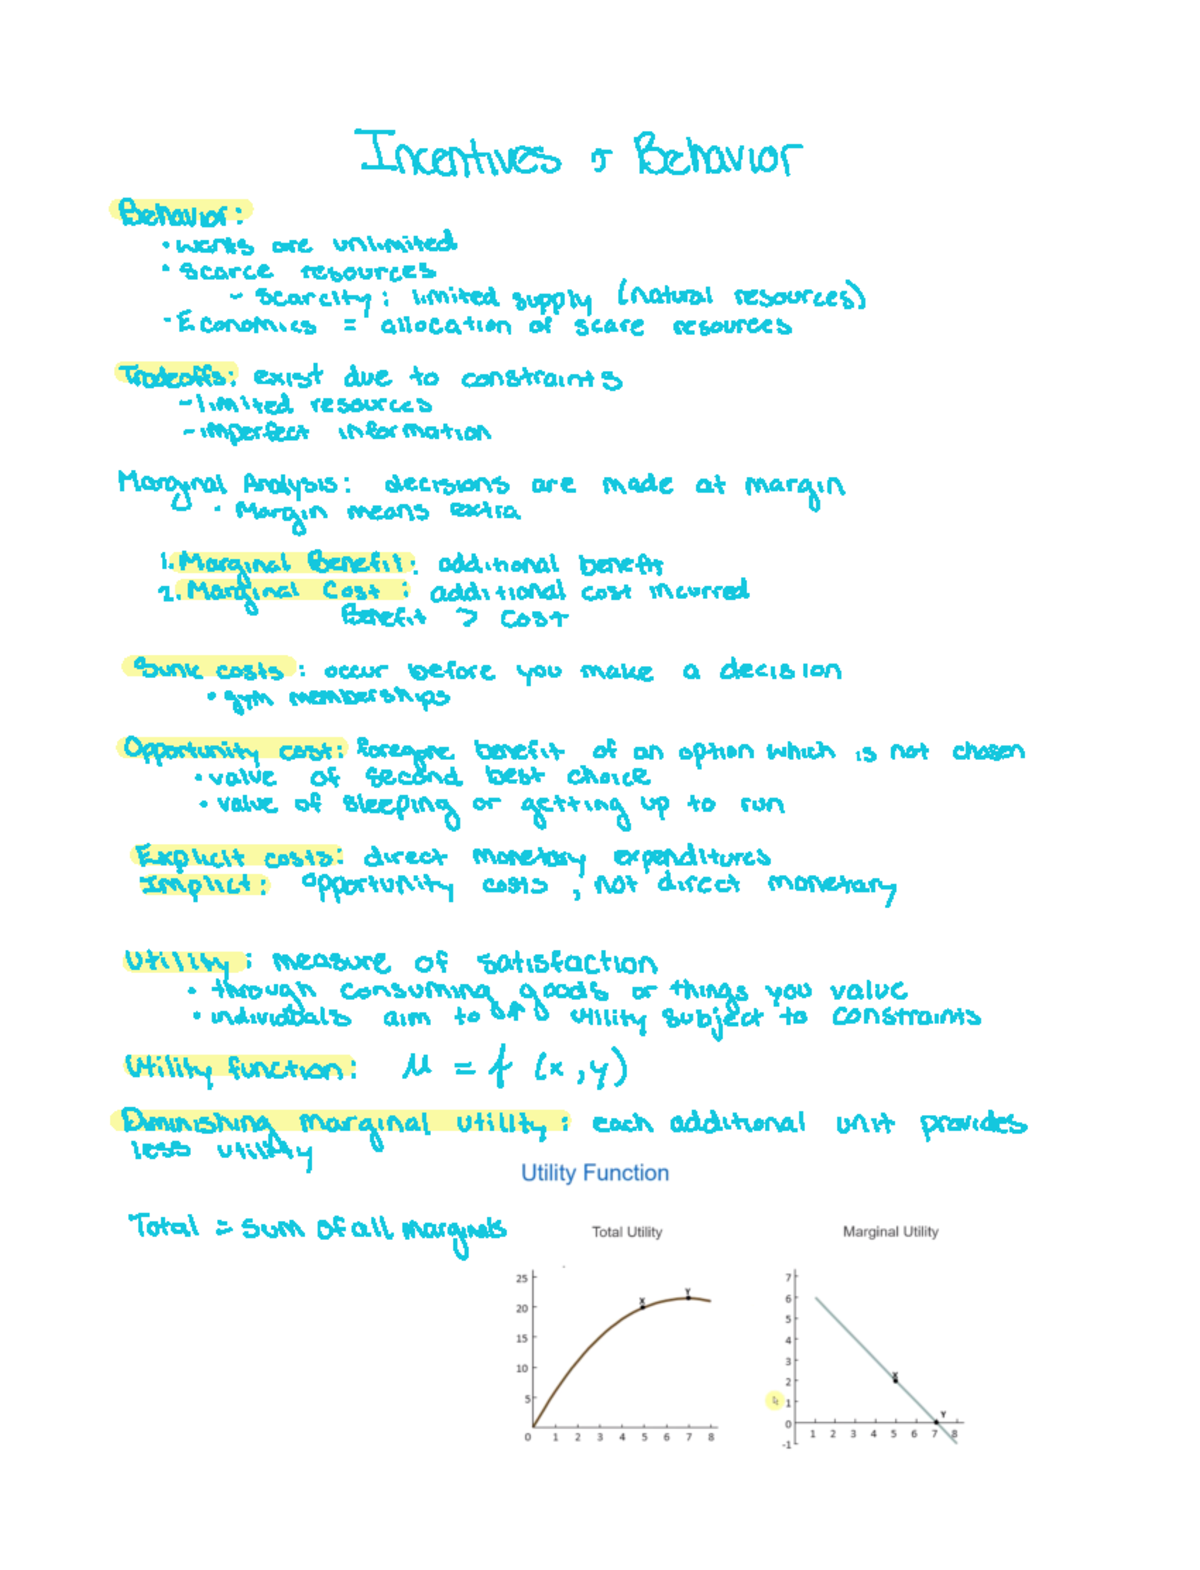 Incentives & Behavior
Behavior:
• wants are unlimited
• scarce resources
- scarcity: limited supply (natural resources)
- Economics = allocation of scare resources
Tradeoffs: exist due to constraints
- limited resources
- imperfect information
Marginal Analysis: decisions are made at margin
• Margin means extra
1. Marginal Benefit: additional benefit
2. Marginal Cost: additional cost incurred
Benefit > cost
Sunk costs: occur before you make a decision
• gym memberships
Opportunity cost: foregone benefit of an option which is not chosen
• value of second best choice
• value of sleeping or getting up to run
Explicit costs: direct monetary expenditures
Implict: opportunity costs, not direct monetary
Utility: measure of satisfaction
• through consuming goods or things you value
• individuals aim to ↑ utility subject to constraints
Utility function: u = f (x,y)
Diminishing marginal utility: each additional unit provides
less utility
Utility Function
Total = sum of all marginals
Total Utility
Marginal Utility
25
20
15
10
5
0 1 2 3 4 5 6 7 8
X
Y
7
6
5
4
3
2
1
0
-1
1 2 3 4 5 6 7 8
X
Y